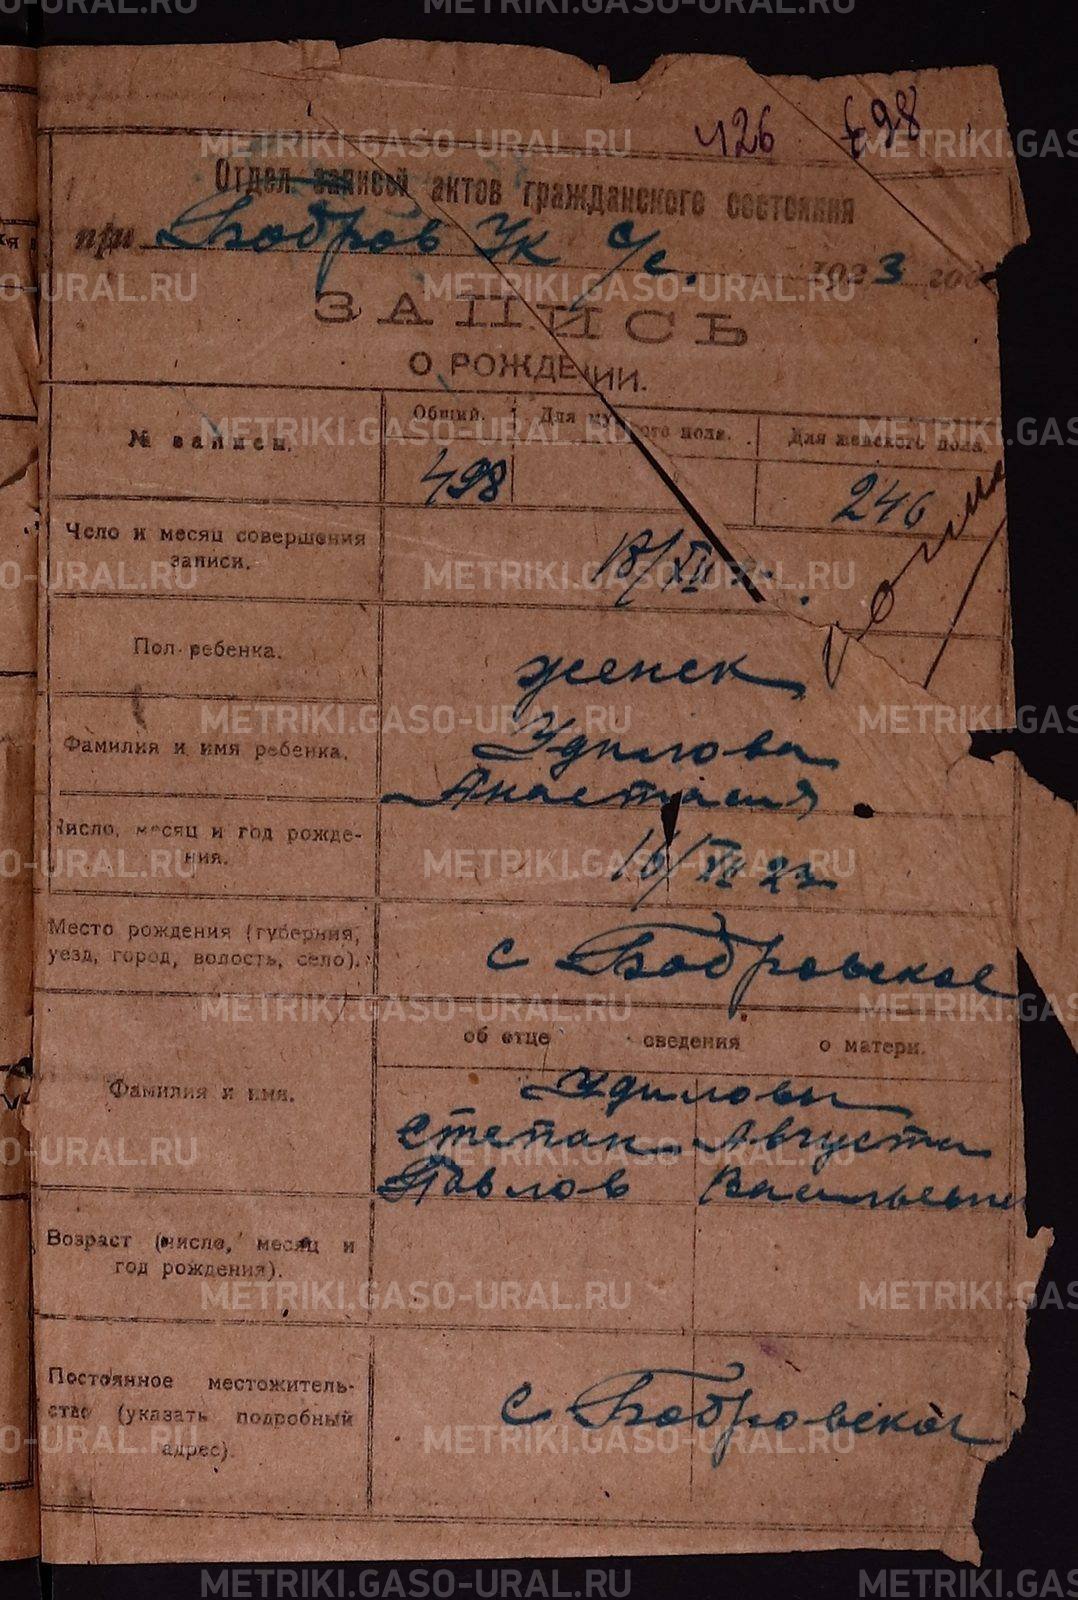 426 498
Отдел записей актов гражданского состояния
при Бобров Ук с/с. 1923 год
ЗАПИСЬ
О РОЖДЕНИИ.
№ записи. Общий. Для мужского пола. Для женского пола.
498 246
Число и месяц совершения
записи. 18/XII
Пол ребенка. женск
Фамилия и имя ребенка. Удилова
Анастасия
Число, месяц и год рожде-
ния. 16/XII 23
Место рождения (губерния,
уезд, город, волость, село). с Бобровское
об отце сведения о матери.
Фамилия и имя. Удиловы
Степан Августа
Павлов Васильевна
Возраст (число, месяц и
год рождения).
Постоянное местожитель-
ство (указать подробный
адрес). с Бобровское
METRIKI.GASO-URAL.RU